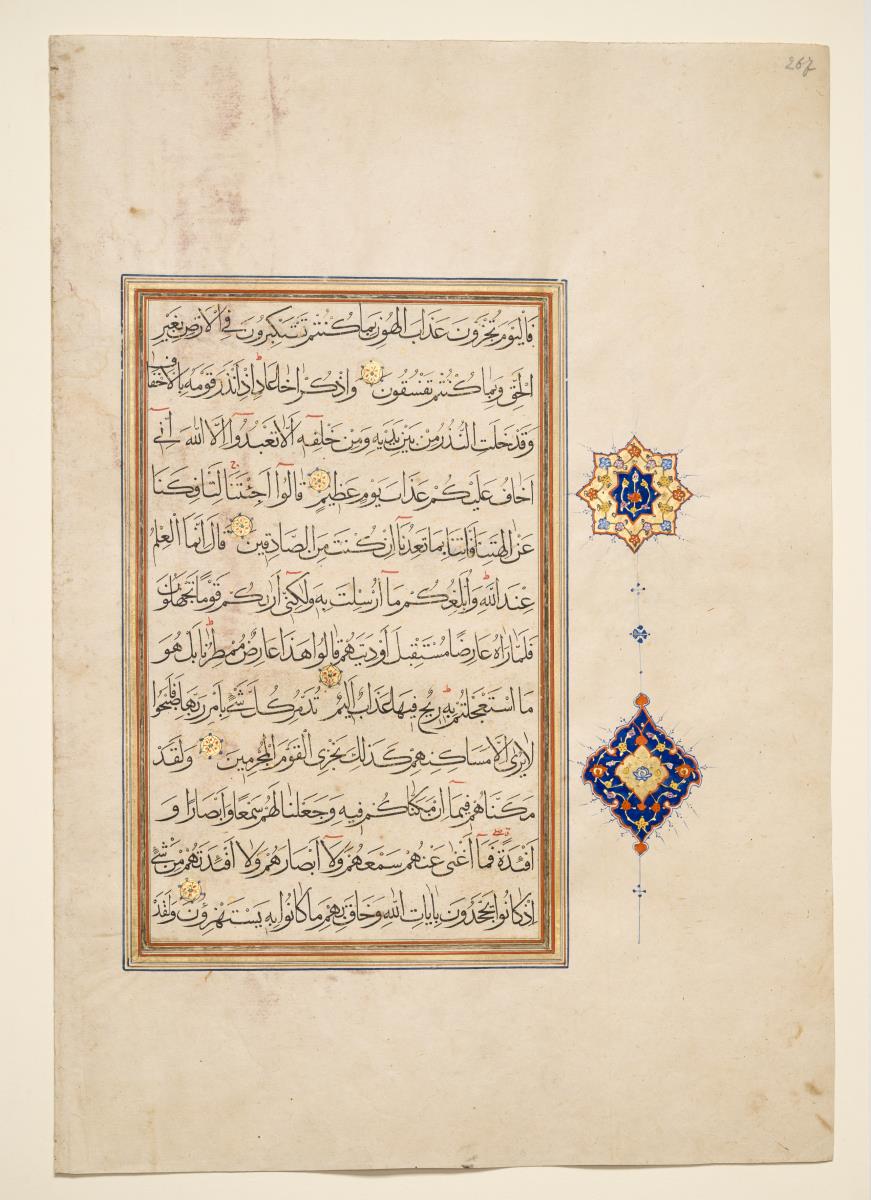 267
فَالْيَوْمَ تُجْزَوْنَ عَذَابَ الْهُونِ بِمَا كُنْتُمْ تَسْتَكْبِرُونَ فِي الْاَرْضِ بِغَيْرِ
الْحَقِّ وَبِمَا كُنْتُمْ تَفْسُقُونَ وَاذْكُرْ اَخَا عَادٍ اِذْ اَنْذَرَ قَوْمَهُ بِالْاَحْقَافِ
وَقَدْ خَلَتِ النُّذُرُ مِنْ بَيْنِ يَدَيْهِ وَمِنْ خَلْفِهِ اَلَّا تَعْبُدُوا اِلَّا اللّٰهَ اِنِّي
اَخَافُ عَلَيْكُمْ عَذَابَ يَوْمٍ عَظِيمٍ قَالُوا اَجِئْتَنَا لِتَأْفِكَنَا
عَنْ اٰلِهَتِنَا فَأْتِنَا بِمَا تَعِدُنَا اِنْ كُنْتَ مِنَ الصَّادِقِينَ قَالَ اِنَّمَا الْعِلْمُ
عِنْدَ اللّٰهِ وَاُبَلِّغُكُمْ مَا اُرْسِلْتُ بِهِ وَلٰكِنِّي اَرٰيكُمْ قَوْمًا تَجْهَلُونَ
فَلَمَّا رَاَوْهُ عَارِضًا مُسْتَقْبِلَ اَوْدِيَتِهِمْ قَالُوا هٰذَا عَارِضٌ مُمْطِرُنَا بَلْ هُوَ
مَا اسْتَعْجَلْتُمْ بِهِ رِيحٌ فِيهَا عَذَابٌ اَلِيمٌ تُدَمِّرُ كُلَّ شَيْءٍ بِاَمْرِ رَبِّهَا فَاَصْبَحُوا
لَا يُرٰى اِلَّا مَسَاكِنُهُمْ كَذٰلِكَ نَجْزِي الْقَوْمَ الْمُجْرِمِينَ وَلَقَدْ
مَكَّنَّاهُمْ فِيمَا اِنْ مَكَّنَّاكُمْ فِيهِ وَجَعَلْنَا لَهُمْ سَمْعًا وَاَبْصَارًا وَ
اَفْئِدَةً فَمَا اَغْنٰى عَنْهُمْ سَمْعُهُمْ وَلَا اَبْصَارُهُمْ وَلَا اَفْئِدَتُهُمْ مِنْ شَيْءٍ
اِذْ كَانُوا يَجْحَدُونَ بِاٰيَاتِ اللّٰهِ وَحَاقَ بِهِمْ مَا كَانُوا بِهِ يَسْتَهْزِؤُنَ وَلَقَدْ